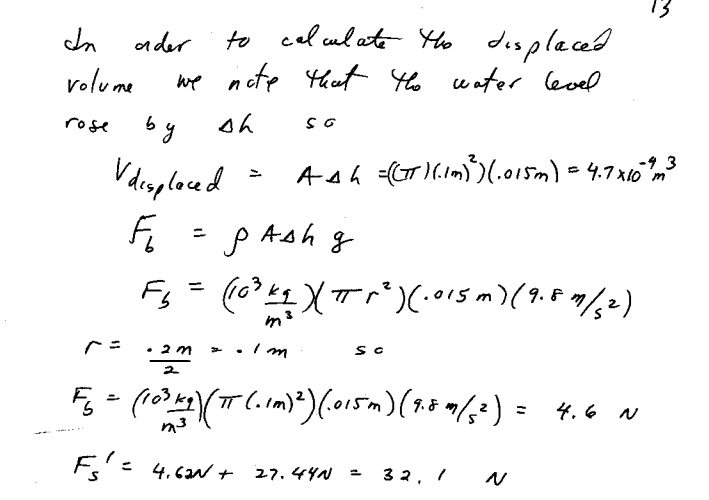 13
In order to calculate the displaced
volume we note that the water level
rose by Δh so
V displaced = A Δh = ((π)(.1m)²)(.015m) = 4.7 x 10⁻⁴ m³
F_b = ρ A Δh g
F_b = (10³ kg/m³)(π r²)(.015 m)(9.8 m/s²)
r = .2m/2 = .1m so
F_b = (10³ kg/m³)(π(.1m)²)(.015m)(9.8 m/s²) = 4.6 N
F_s' = 4.62N + 27.44N = 32.1 N